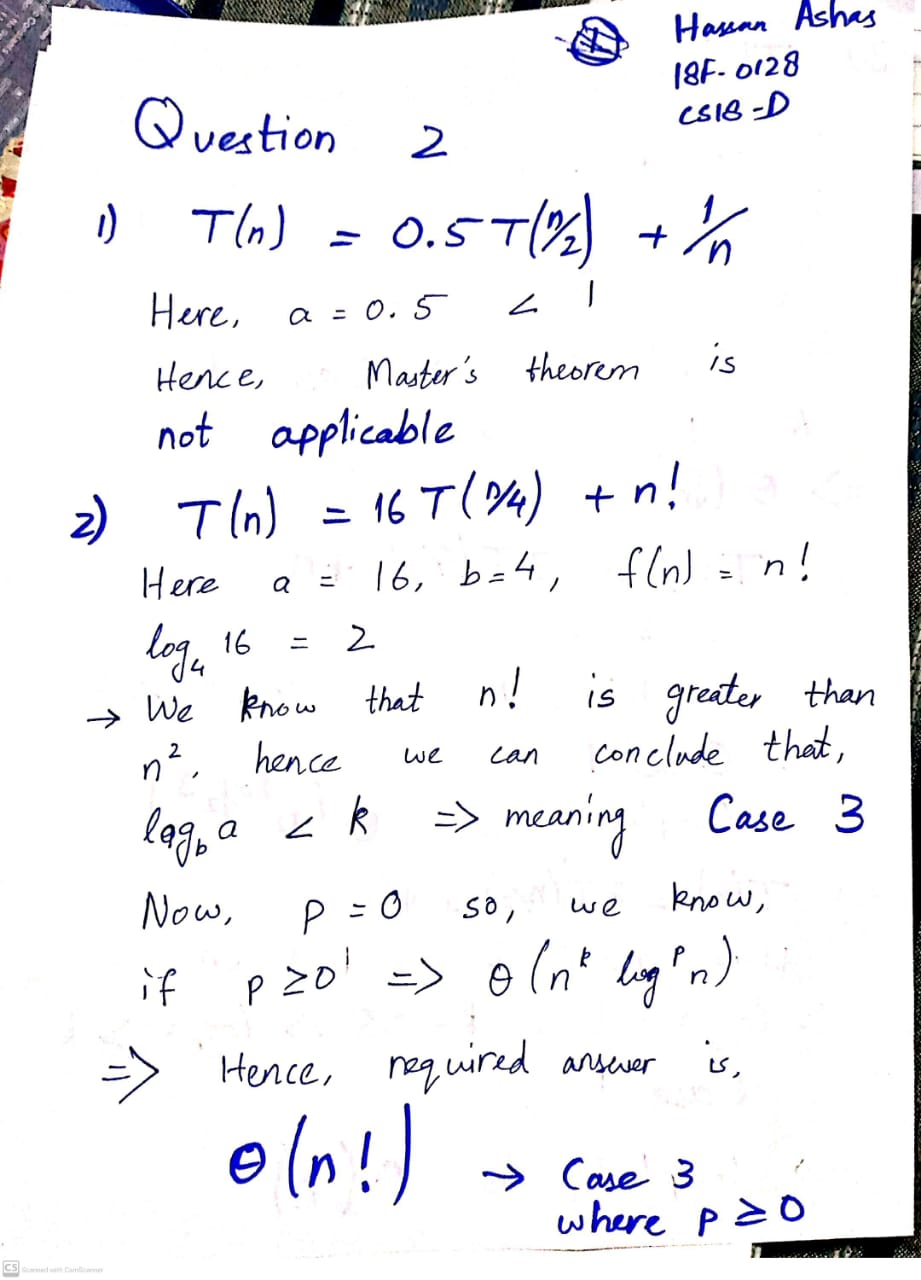 Hassan Ashas
18F-0128
CS18-D
Question 2
1) T(n) = 0.5T(n/2) + 1/n
Here, a = 0.5 < 1
Hence, Master's theorem is
not applicable
2) T(n) = 16T(n/4) + n!
Here a = 16, b=4, f(n) = n!
log₄ 16 = 2
→ We know that n! is greater than
n², hence we can conclude that,
log_b a < k => meaning Case 3
Now, p = 0 so, we know,
if p ≥ 0 => θ(n^k log^p n)
=> Hence, required answer is,
θ(n!) → Case 3
where p ≥ 0
CS Scanned with CamScanner